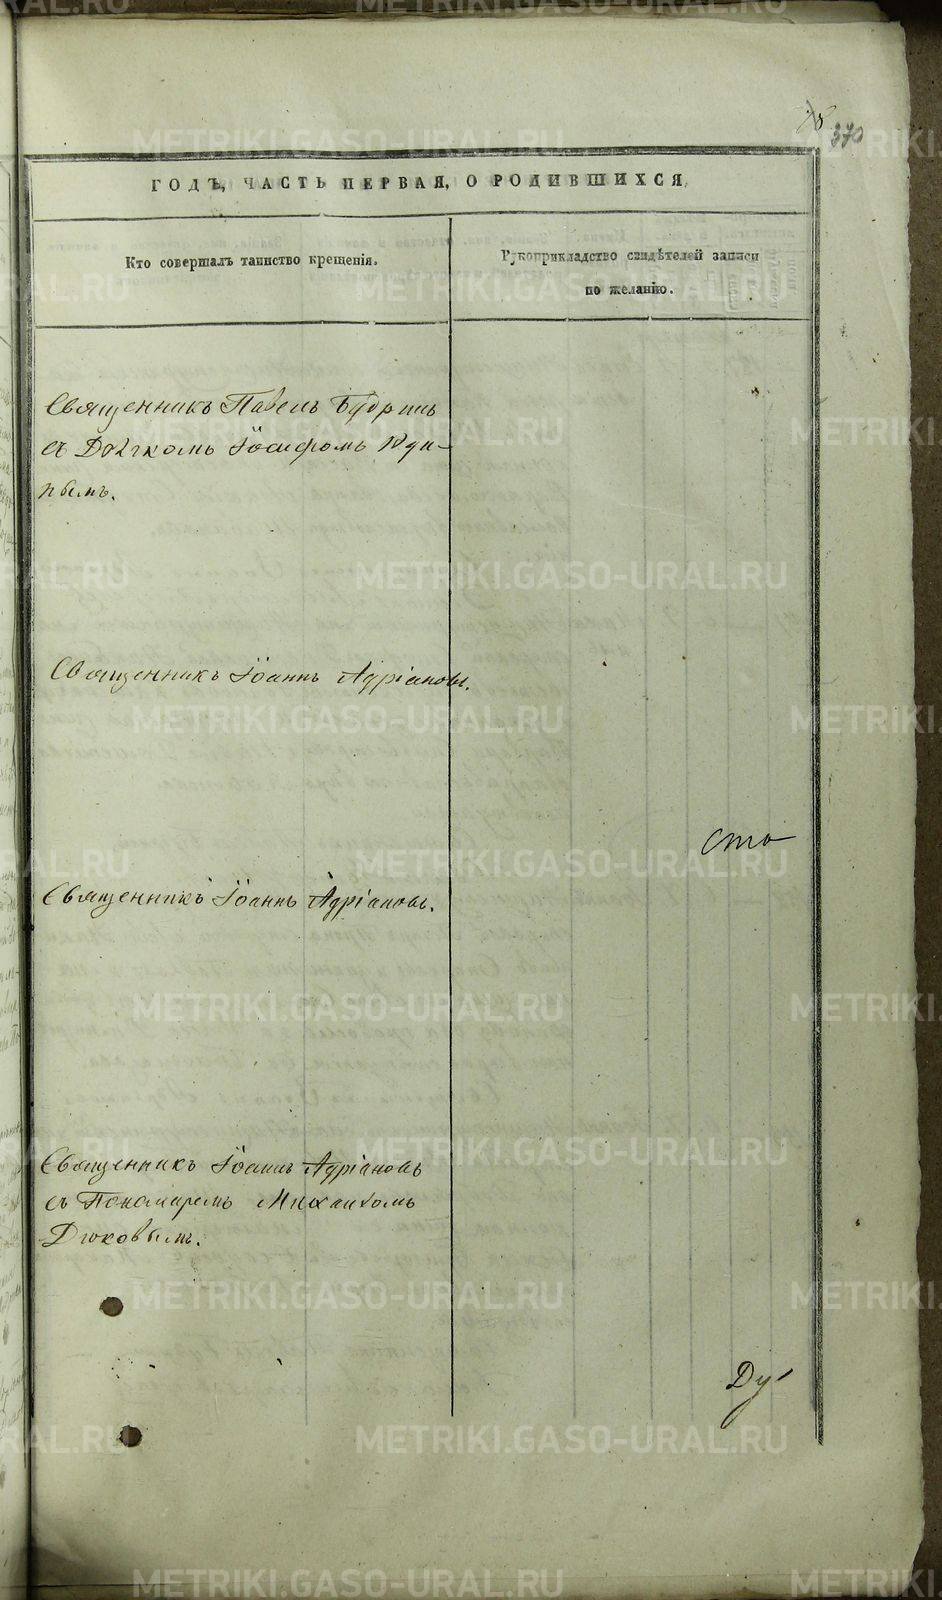 370
ГОДЪ, ЧАСТЬ ПЕРВАЯ, О РОДИВШИХСЯ,
Кто совершалъ таинство крещенія.
Рукоприкладство свидѣтелей записи
по желанію.
Священникъ Павелъ Будринъ
съ Дьячкомъ Іосифомъ
нымъ.
Священникъ Іоаннъ Адріановъ.
Сто
Священникъ Іоаннъ Адріановъ.
Священникъ Іоаннъ Адріановъ
съ Пономаремъ Михаиломъ
Дюковымъ.
Ду
METRIKI.GASO-URAL.RU